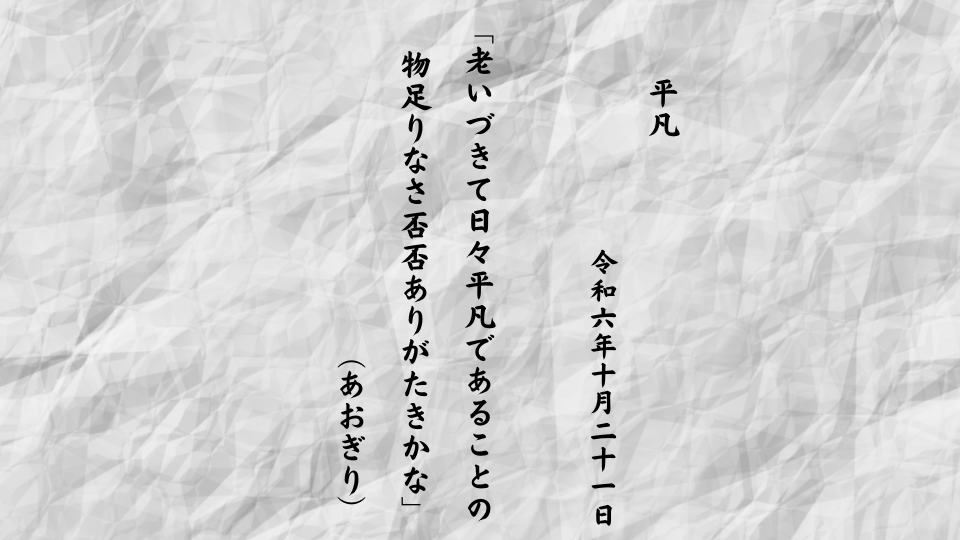 平凡
令和六年十月二十一日
「老いづきて日々平凡であることの
物足りなさ否否ありがたきかな」
（あおぎり）